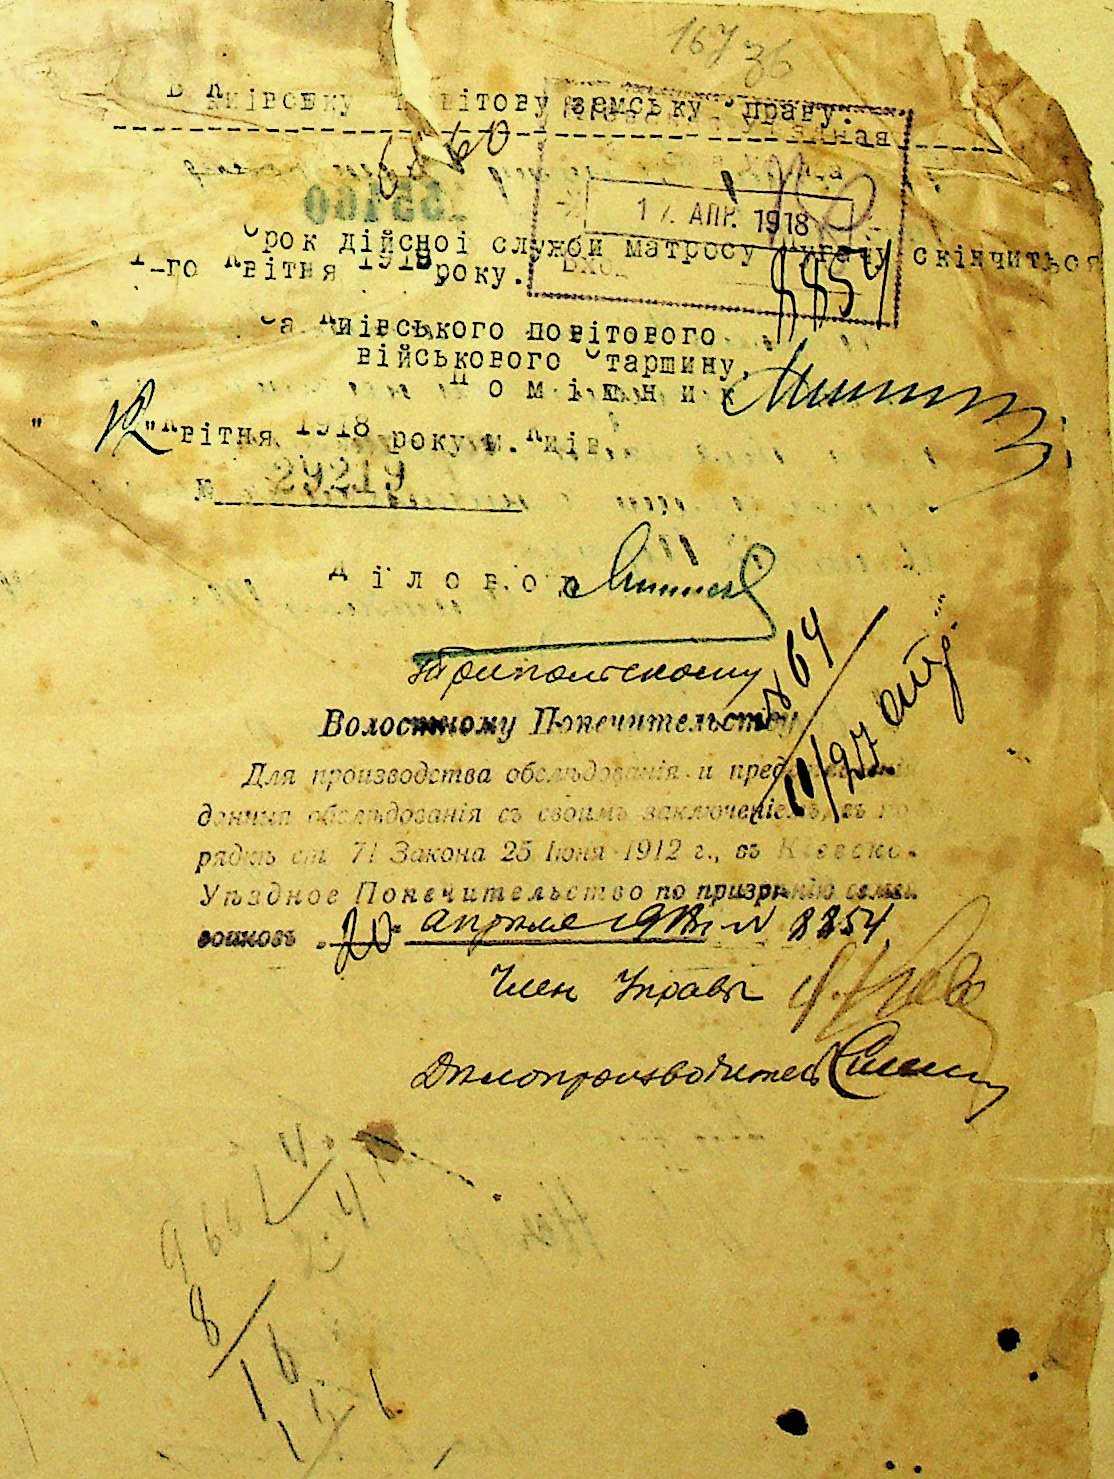 167 36
В Киівську повітову земську Управу.
6460
17 АПР. 1918
Вход
8854
Срок дійсноі служби матросу скінчиться
1-го Квітня 1918 року.
За Киівського повітового
військового Старшину,
Помішник
"12" Квітня 1918 року м. Киів.
№ 29219
Діловод
Трипольскому
Волостному Попечительству
№ 64
10/27 апр.
Для производства обслѣдованія и представленія
данныя обслѣдованія съ своимъ заключеніемъ, въ по-
рядкѣ ст. 71 Закона 25 Іюня 1912 г., въ Кіевское
Уѣздное Попечительство по призрѣнію семей
воиновъ „20" апреля 1918 г. N 8854
Член Управы
Делопроизводитель